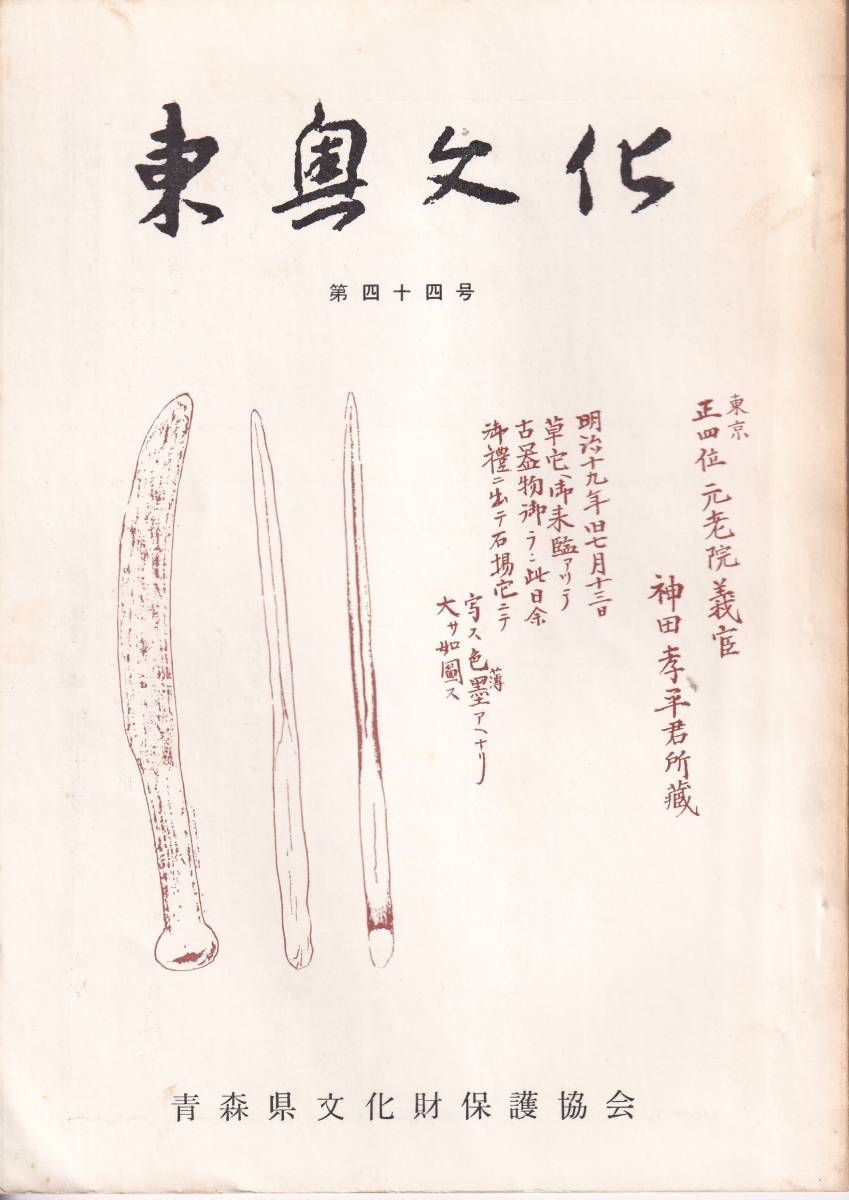 東奥文化
第四十四号
東京
正四位 元老院 義官
神田孝平君所蔵
明治十九年旧七月十三日
草宅ヘ御来臨アツテ
古器物御ランニ此日余
御禮ニ出テ石場宅ニテ
写ス色薄墨アヘナリ
大サ如圖ス
青森県文化財保護協会